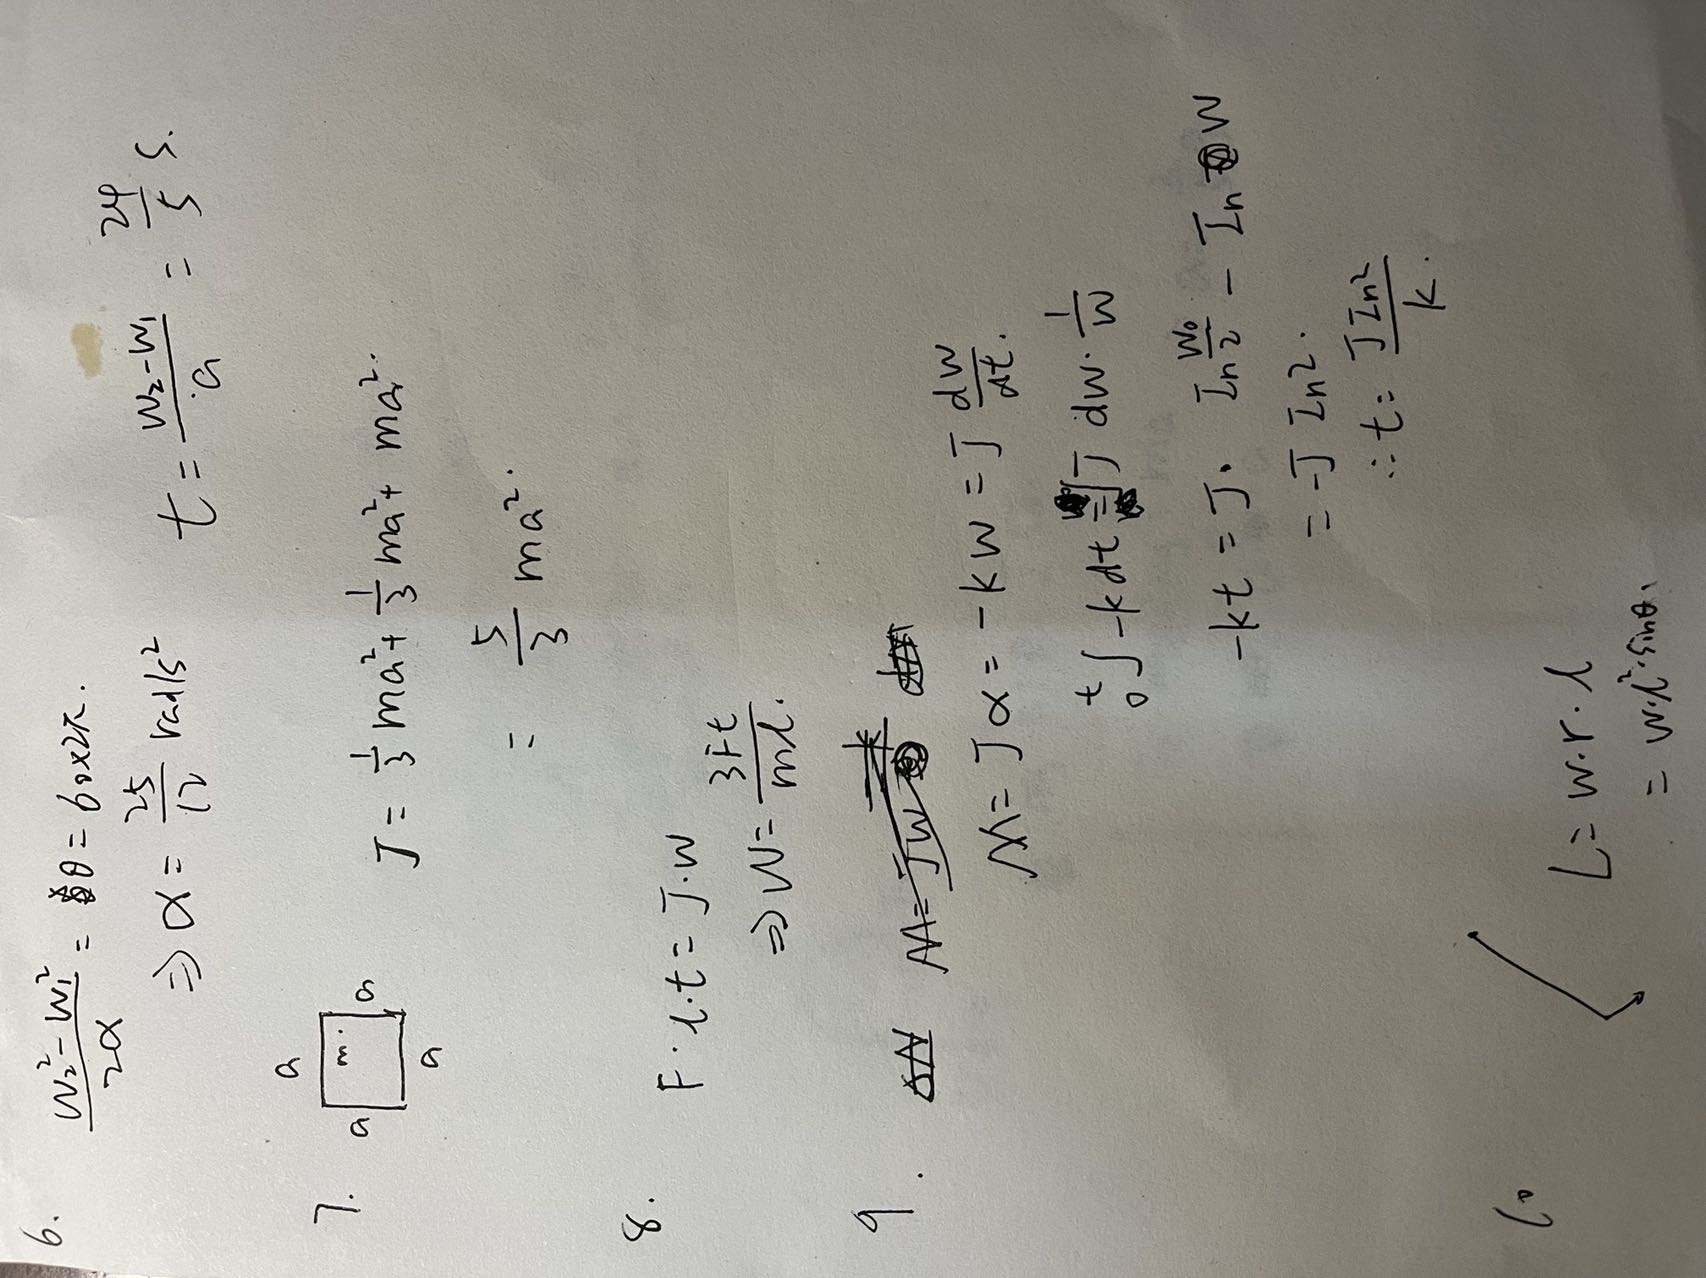 6.
(W₂² - W₁²)/2α = θ = 60×2π.
⇒ α = 25/12 rad/s²
t = (W₂-W₁)/a = 24/5 s.
7.
a
a m. a
a
J = 1/3 ma² + 1/3 ma² + ma².
= 5/3 ma².
8.
F·l·t = J·W
⇒ W = 3Ft/ml.
9.
M = Jα = -kW = J dW/dt.
ₒᵗ∫ -kdt = ∫ J dW· 1/W
-kt = J· In W₀/2 - In W
= -J In2.
∴ t = J In2/k.
10
L = W·r·l
= W·l²·sinθ.